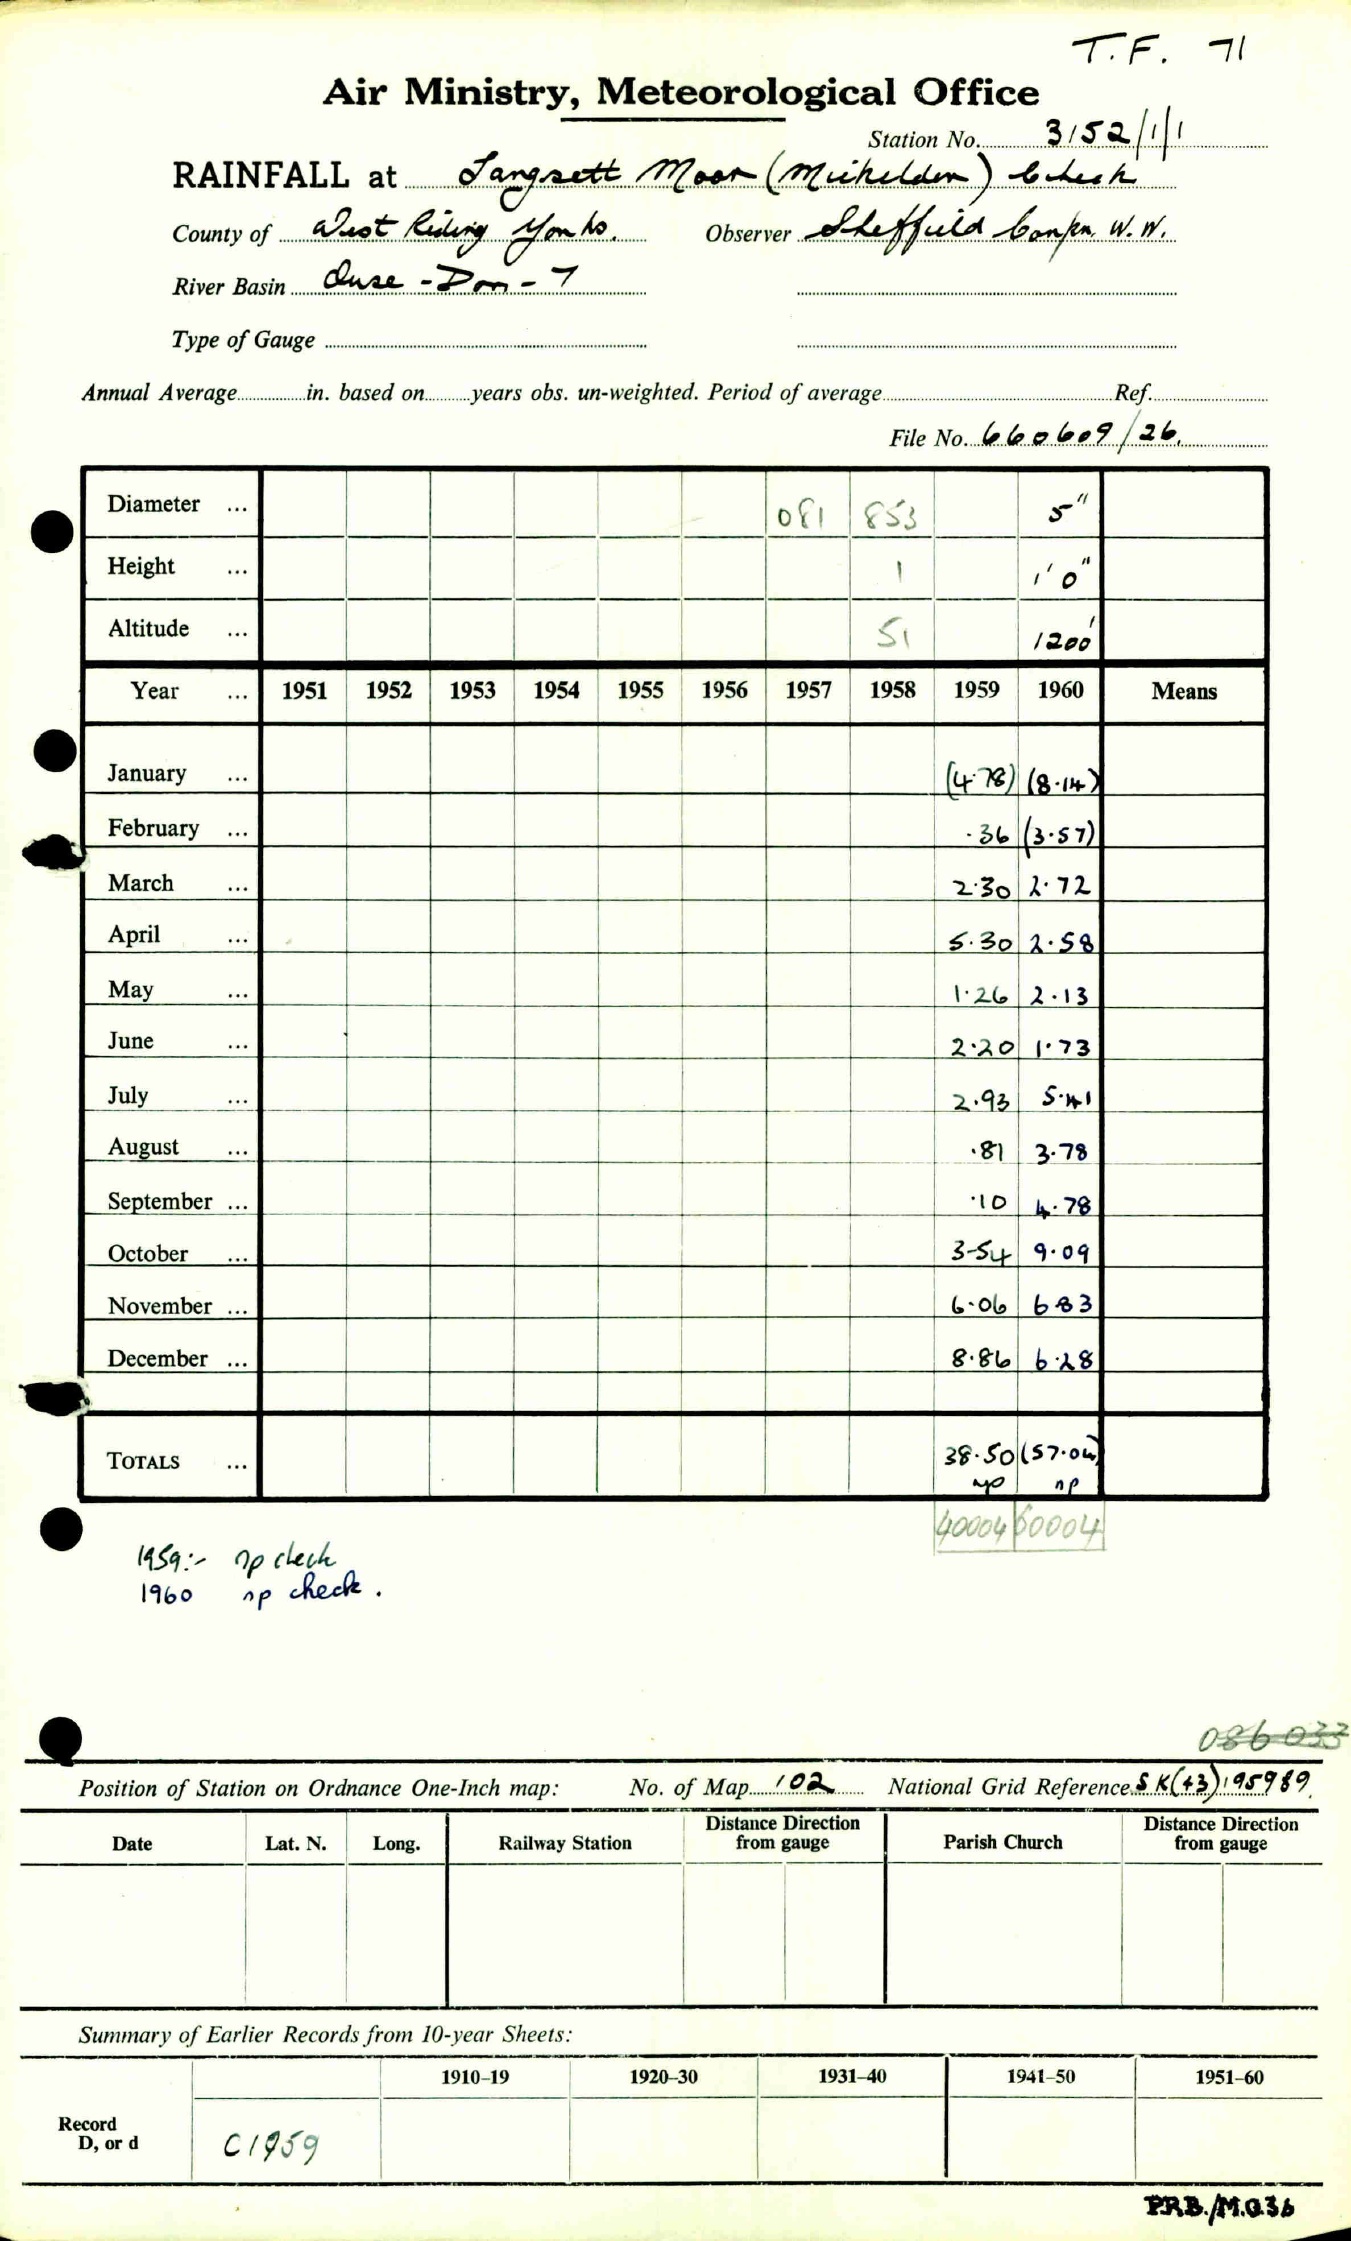 T.F. 71
Air Ministry, Meteorological Office
Station No. 3152/1/1
RAINFALL at Langsett Moor (Mickelden) Check
County of West Riding Yorks. Observer Sheffield Corpn. W.W.
River Basin Ouse - Don - 7
Type of Gauge
Annual Average in. based on years obs. un-weighted. Period of average Ref.
File No. 660609/26.
Diameter ... 081 853 5"
Height ... 1 1' 0"
Altitude ... 51 1200'
Year ... 1951 1952 1953 1954 1955 1956 1957 1958 1959 1960 Means
January ... (4.78) (8.14)
February ... .36 (3.57)
March ... 2.30 2.72
April ... 5.30 2.58
May ... 1.26 2.13
June ... 2.20 1.73
July ... 2.93 5.41
August ... .81 3.78
September ... .10 4.78
October ... 3.54 9.09
November ... 6.06 6.83
December ... 8.86 6.28
TOTALS ... 38.50 (57.04)
np np
40004 60004
1959:- np check
1960 np check.
086 033
Position of Station on Ordnance One-Inch map: No. of Map 102 National Grid Reference SK(43)195989
Date Lat. N. Long. Railway Station Distance Direction from gauge Parish Church Distance Direction from gauge
Summary of Earlier Records from 10-year Sheets:
1910–19 1920–30 1931–40 1941–50 1951–60
Record D, or d C1959
PRB./M.O.36